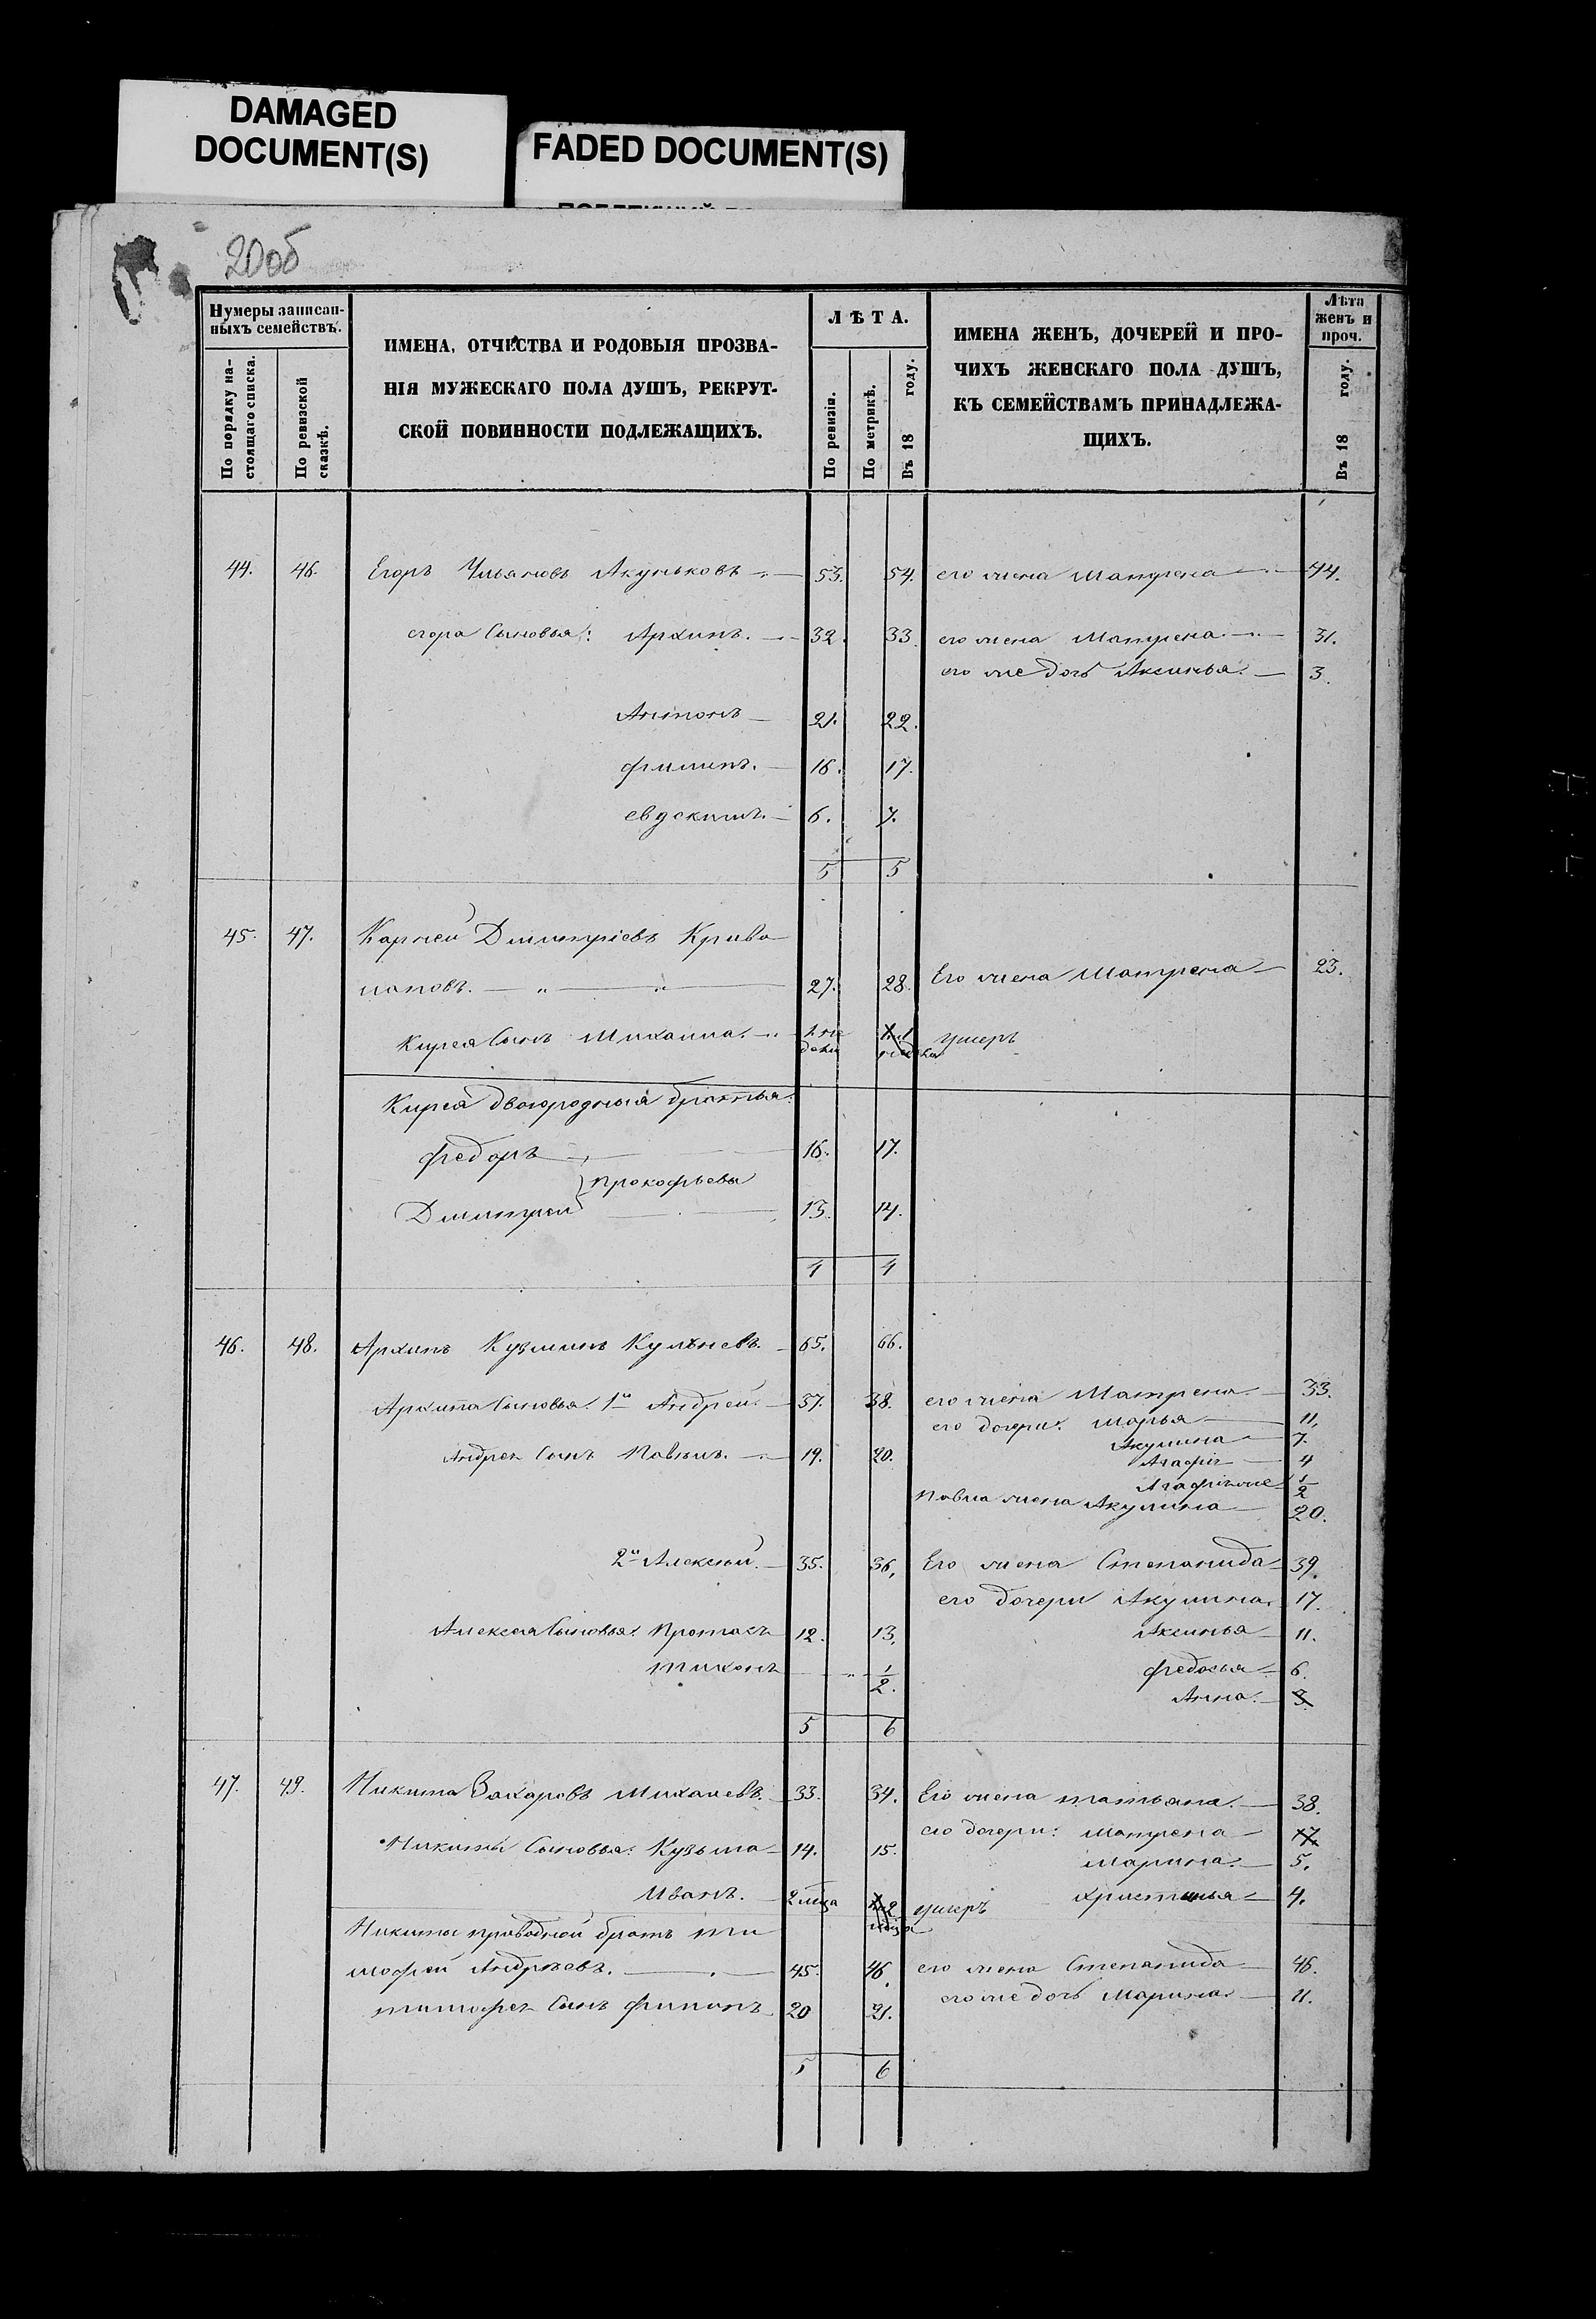 DAMAGED
DOCUMENT(S)
FADED DOCUMENT(S)
20об
Нумеры записан-
ныхъ семействъ.
По порядку на-
стоящаго списка.
По ревизской
сказкѣ.
ИМЕНА, ОТЧЕСТВА И РОДОВЫЯ ПРОЗВА-
НІЯ МУЖЕСКАГО ПОЛА ДУШЪ, РЕКРУТ-
СКОЙ ПОВИННОСТИ ПОДЛЕЖАЩИХЪ.
ЛѢТА.
По ревизіи.
По метрикѣ.
Въ 18 году.
ИМЕНА ЖЕНЪ, ДОЧЕРЕЙ И ПРО-
ЧИХЪ ЖЕНСКАГО ПОЛА ДУШЪ,
КЪ СЕМЕЙСТВАМЪ ПРИНАДЛЕЖА-
ЩИХЪ.
Лѣта
женъ и
проч.
Въ 18 году.
44. 46. Егоръ Ульяновъ Акуньковъ 53. 54. его жена Матрена 44.
егора Сыновья: Архипъ. 32. 33. его жена Матрена. 31.
его же дочь Аксинья. 3.
Антонъ 21. 22.
филипъ. 16. 17.
евдокимъ. 6. 7.
5 5
45. 47. Дмитріевъ Криво
27. 28. Его жена Матрена 23.
Сынъ Михаила. умеръ
двоюродныя братья.
федоръ 16. 17.
Прокофьевы
Дмитрей 13. 14.
4 4
46. 48. Архипъ Кузминъ 65. 66.
Архипа Сыновья. 1й Андрей. 37. 38. его жена Матрена. 33.
его дочери: Марья 11.
Андрея Сынъ Павелъ. 19. 20. Акулина 7.
Агафія 4
Агафія же 1/2
Павла жена Акулина 20.
2й Алексѣй. 35. 36. Его жена Степанида 39.
его дочери Акулина. 17.
Алексея Сыновья: Протасъ 12. 13. Аксинья 11.
Тихонъ 1/2. федосья 6.
Анна. 3.
5 6
47. 49. Никита Захаровъ Михалевъ. 33. 34. Его жена татьяна. 38.
его дочери: Матрена 17.
Никиты Сыновья: Кузьма 14. 15. Марина. 5.
Иванъ. умеръ христинья 4.
Никиты братъ Ти
мофей Андрѣевъ. 45. 46. его жена Степанида 46.
его же дочь Марина. 11.
тимофея Сынъ филипъ 20 21.
5 6